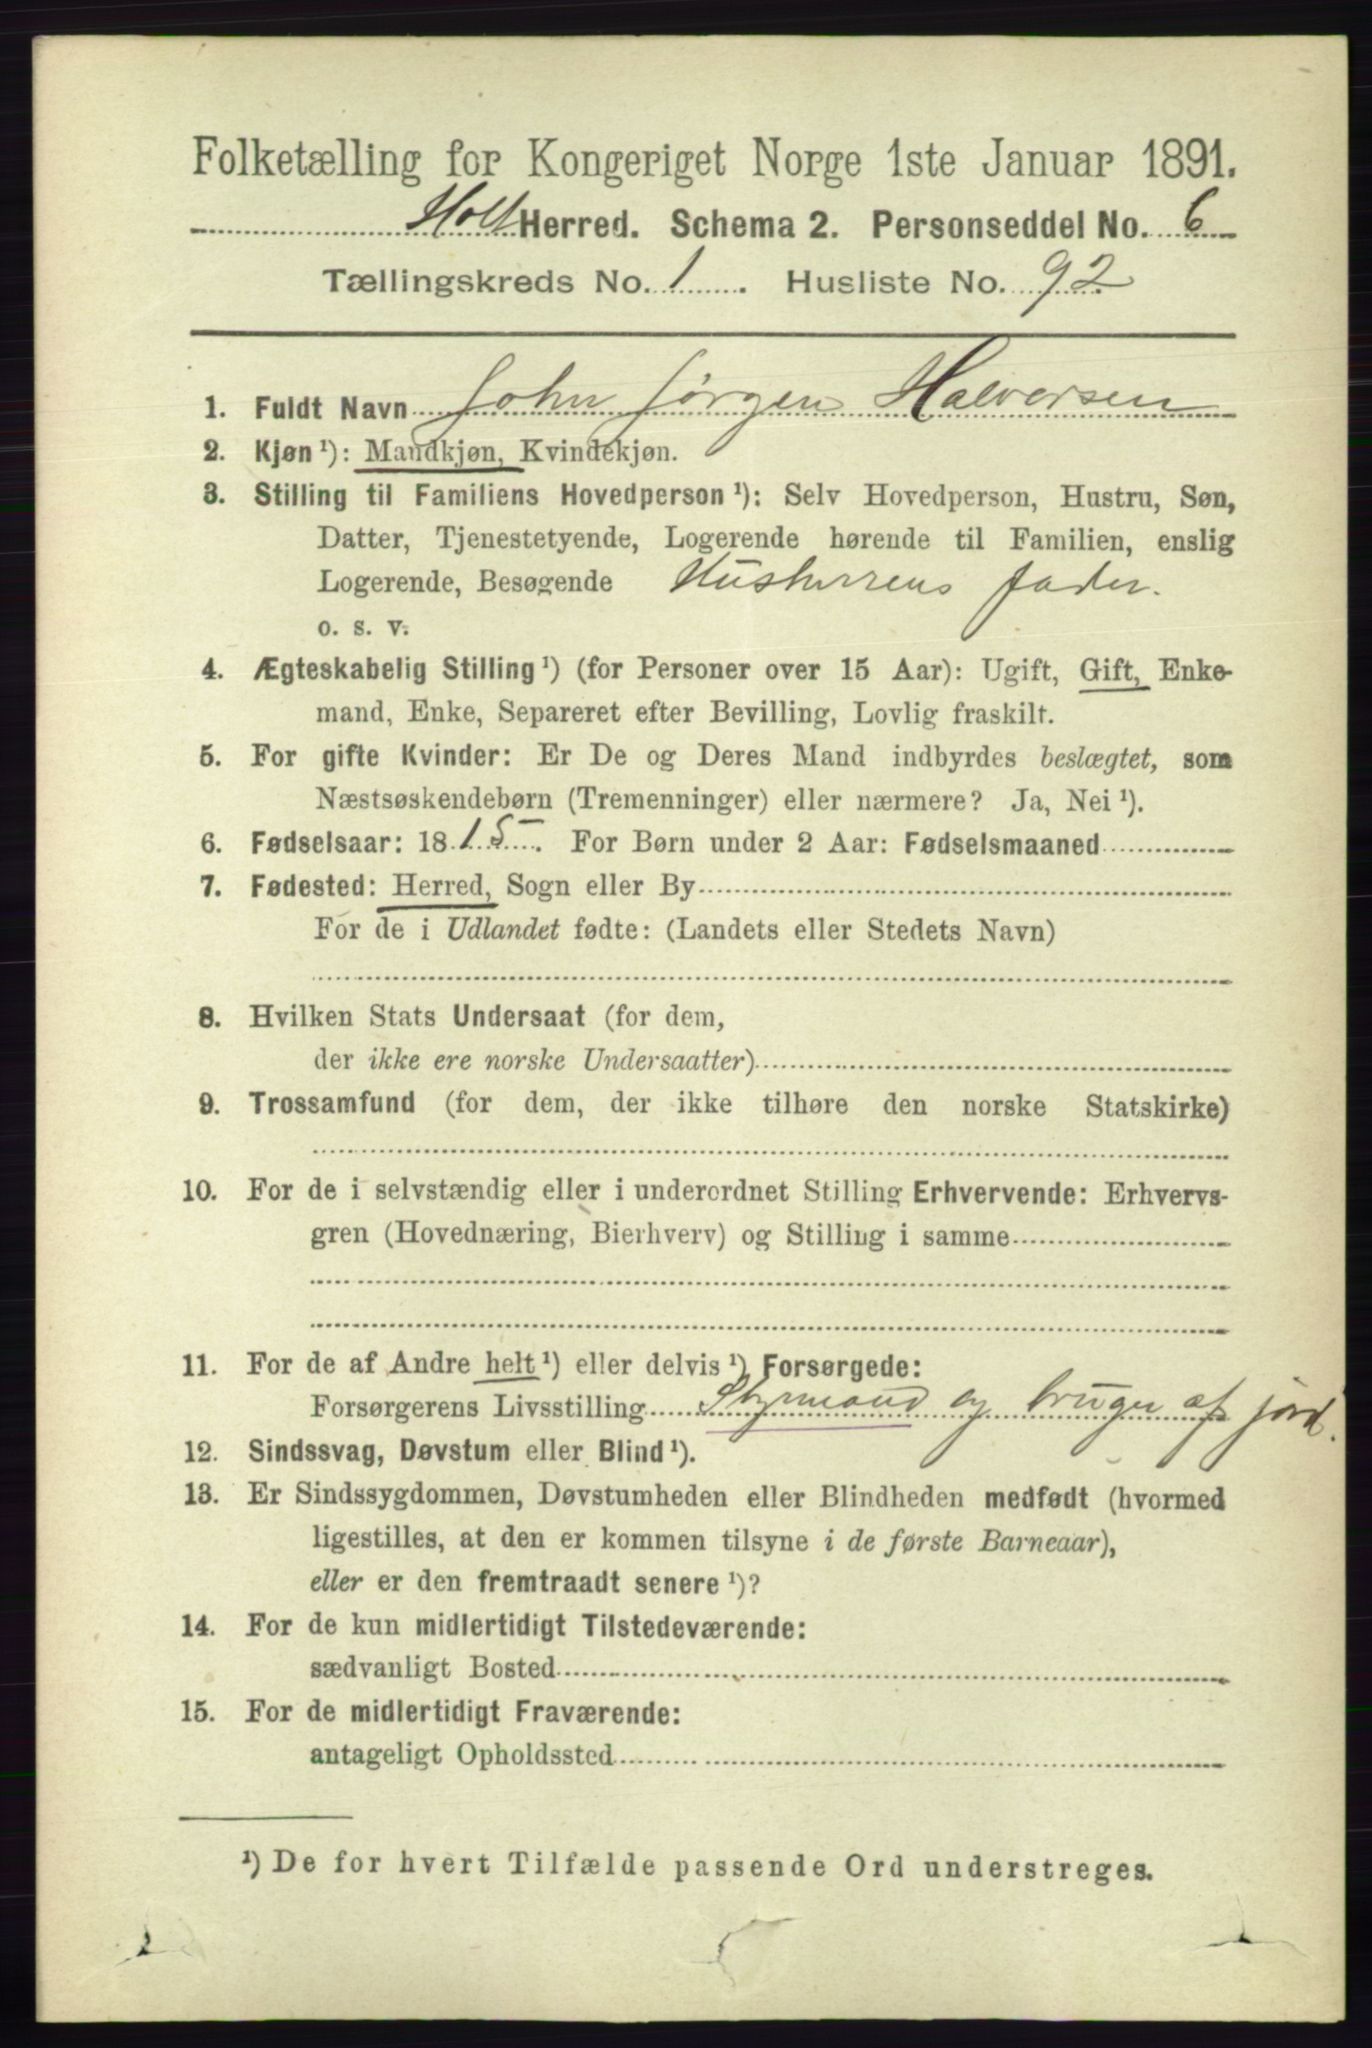 Folketælling for Kongeriget Norge 1ste Januar 1891.
Holt Herred. Schema 2. Personseddel No. 6
Tællingskreds No. 1. Husliste No. 92
1. Fuldt Navn John Jørgen Halvorsen
2. Kjøn¹): Mandkjøn, Kvindekjøn.
3. Stilling til Familiens Hovedperson¹): Selv Hovedperson, Hustru, Søn,
Datter, Tjenestetyende, Logerende hørende til Familien, enslig
Logerende, Besøgende Husherrens fader.
o. s. v.
4. Ægteskabelig Stilling¹) (for Personer over 15 Aar): Ugift, Gift, Enke-
mand, Enke, Separeret efter Bevilling, Lovlig fraskilt.
5. For gifte Kvinder: Er De og Deres Mand indbyrdes beslægtet, som
Næstsøskendebørn (Tremenninger) eller nærmere? Ja, Nei¹).
6. Fødselsaar: 1815. For Børn under 2 Aar: Fødselsmaaned
7. Fødested: Herred, Sogn eller By
For de i Udlandet fødte: (Landets eller Stedets Navn)
8. Hvilken Stats Undersaat (for dem,
der ikke ere norske Undersaatter)
9. Trossamfund (for dem, der ikke tilhøre den norske Statskirke)
10. For de i selvstændig eller i underordnet Stilling Erhvervende: Erhvervs-
gren (Hovednæring, Bierhverv) og Stilling i samme
11. For de af Andre helt¹) eller delvis¹) Forsørgede:
Forsørgerens Livsstilling Styrmand og bruger af jord.
12. Sindssvag, Døvstum eller Blind¹).
13. Er Sindssygdommen, Døvstumheden eller Blindheden medfødt (hvormed
ligestilles, at den er kommen tilsyne i de første Barneaar),
eller er den fremtraadt senere¹)?
14. For de kun midlertidigt Tilstedeværende:
sædvanligt Bosted
15. For de midlertidigt Fraværende:
antageligt Opholdssted
¹) De for hvert Tilfælde passende Ord understreges.